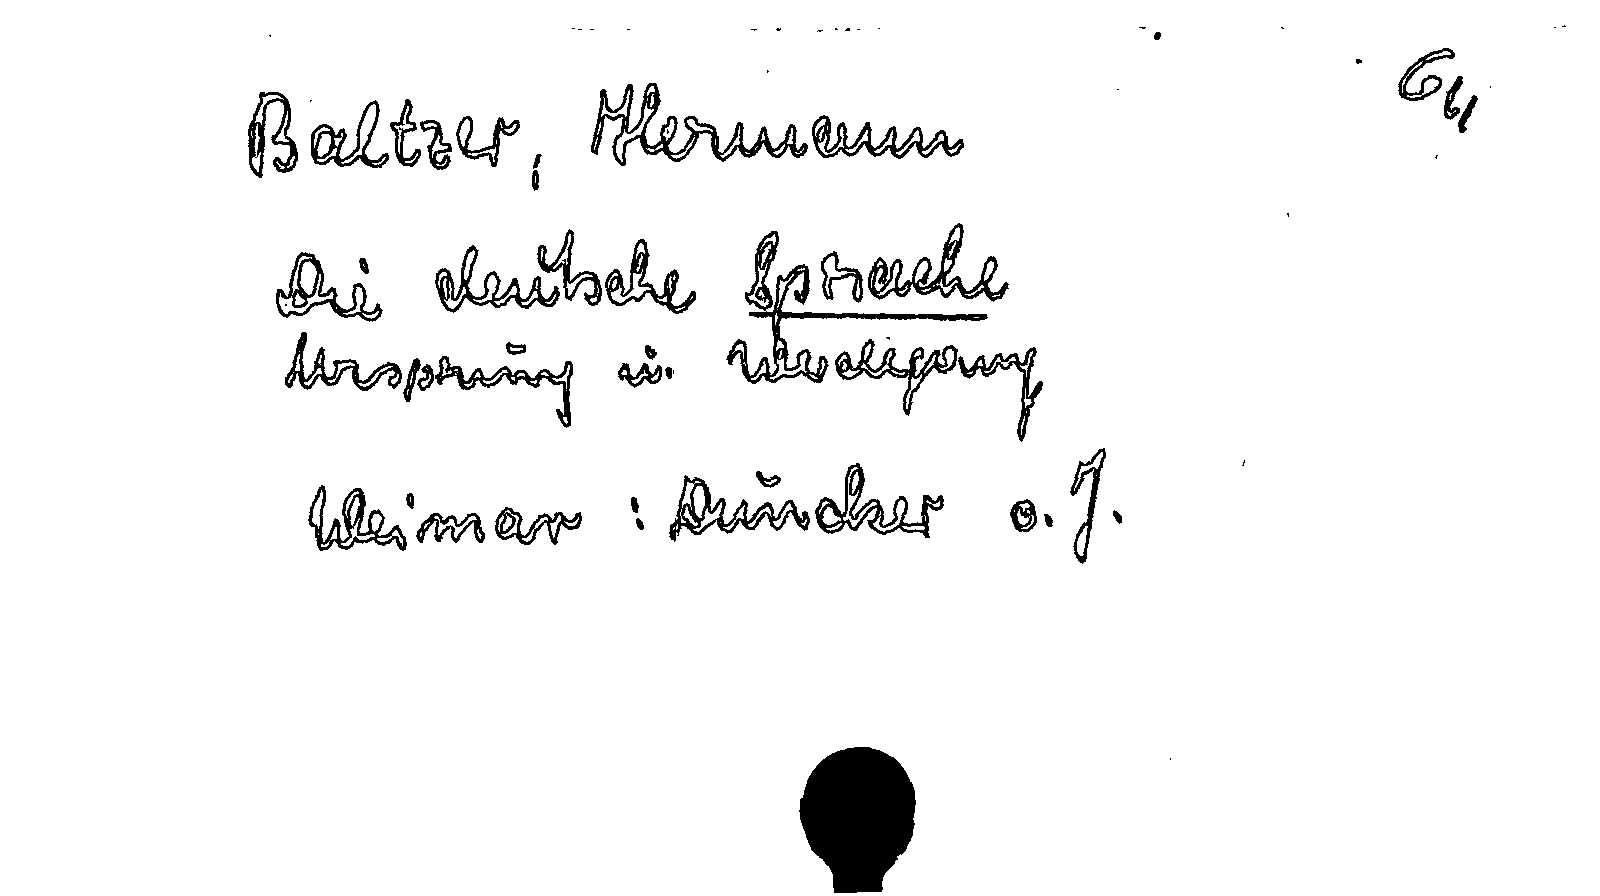 Baltzer, Hermann
Die deutsche Sprache
Ursprung u.
Weimar : Duncker o. J.